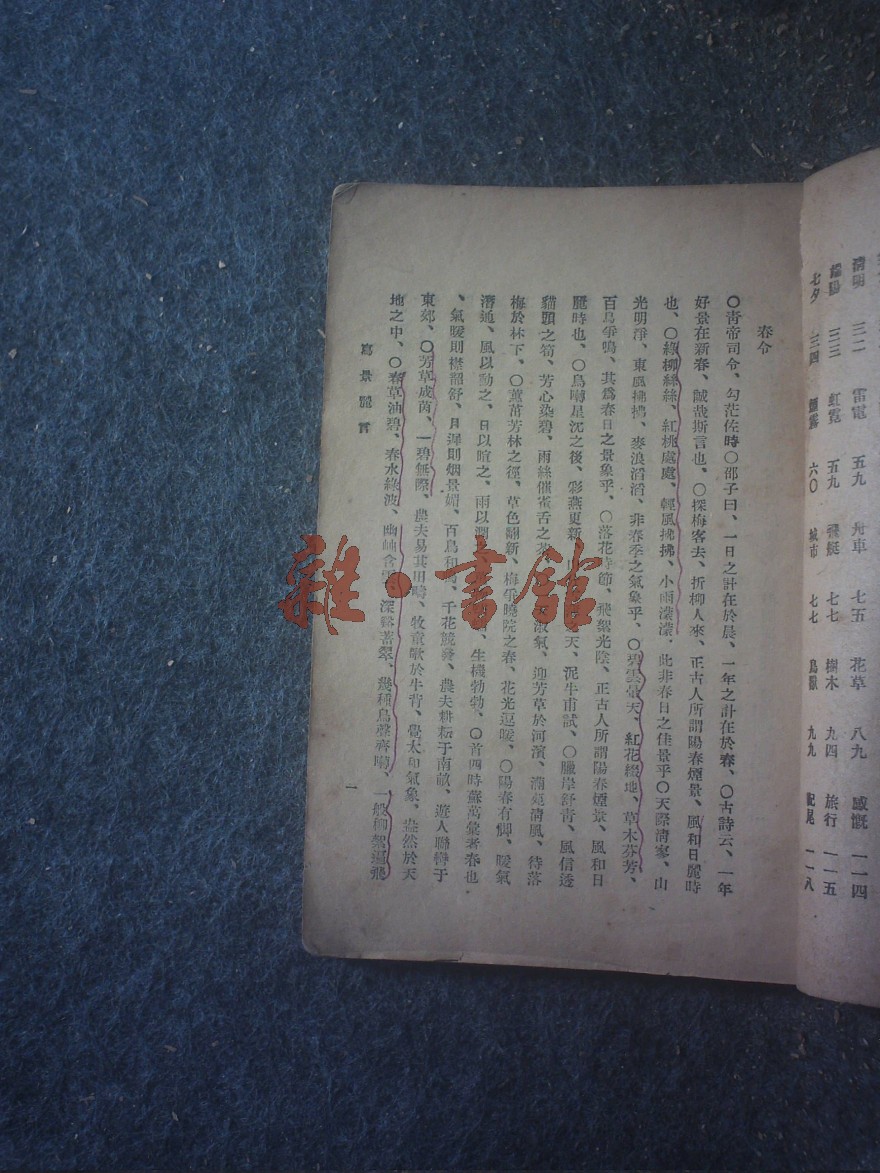 清明 三二 雷電 五九 舟車 七五 花草 八九 感慨 一一四
端陽 三三 虹霓 五九 飛艇 七七 樹木 九四 旅行 一一五
七夕 三四 六〇 城市 七七 鳥獸 九九 一一八
春令
〇靑帝司令、勾茫佐時〇邵子曰、一日之計在於晨、一年之計在於春、〇古詩云、一年
好景在新春、誠哉斯言也、〇探梅客去、折柳人來、正古人所謂陽春煙景、風和日麗時
也、〇綠柳絲絲、紅桃處處、輕風拂拂、小雨濛濛、此非春日之佳景乎〇天際淸寥、山
光明淨、東風拂拂、麥浪滔滔、非春季之氣象乎、〇碧雲曇天、紅花綴地、草木芬芳、
百鳥爭鳴、其爲春日之景象乎、〇落花時節、飛絮光陰、正古人所謂陽春煙景、風和日
麗時也、〇鳥囀星沉之後、彩燕更新、天、泥牛甫試、〇臘岸舒靑、風信透
貓頭之筍、芳心染碧、雨絲催雀舌之茶、淑氣、迎芳草於河濱、淸風、待落
梅於林下、〇薰芳林之徑、草色翻新、梅爭曉院之春、花光逗暖、〇陽春有脚、暖氣
潛通、風以動之、日以暄之、雨以潤、生機勃勃、〇首四時蘇萬彙者春也
、氣暖則襟韻舒、日遲則烟景媚、百鳥和鳴、千花競發、農夫耕耘于南畝、遊人聯轡于
東郊、〇芳草成茵、一碧無際、農夫易其田疇、牧童歌於牛背、覺太和氣象、盎然於天
地之中、〇春草油碧、春水綠波、幽岫含雲、深谿蓄翠、幾種鳥聲齊囀、一般柳絮遍飛
寫景麗言
一
雜·書館